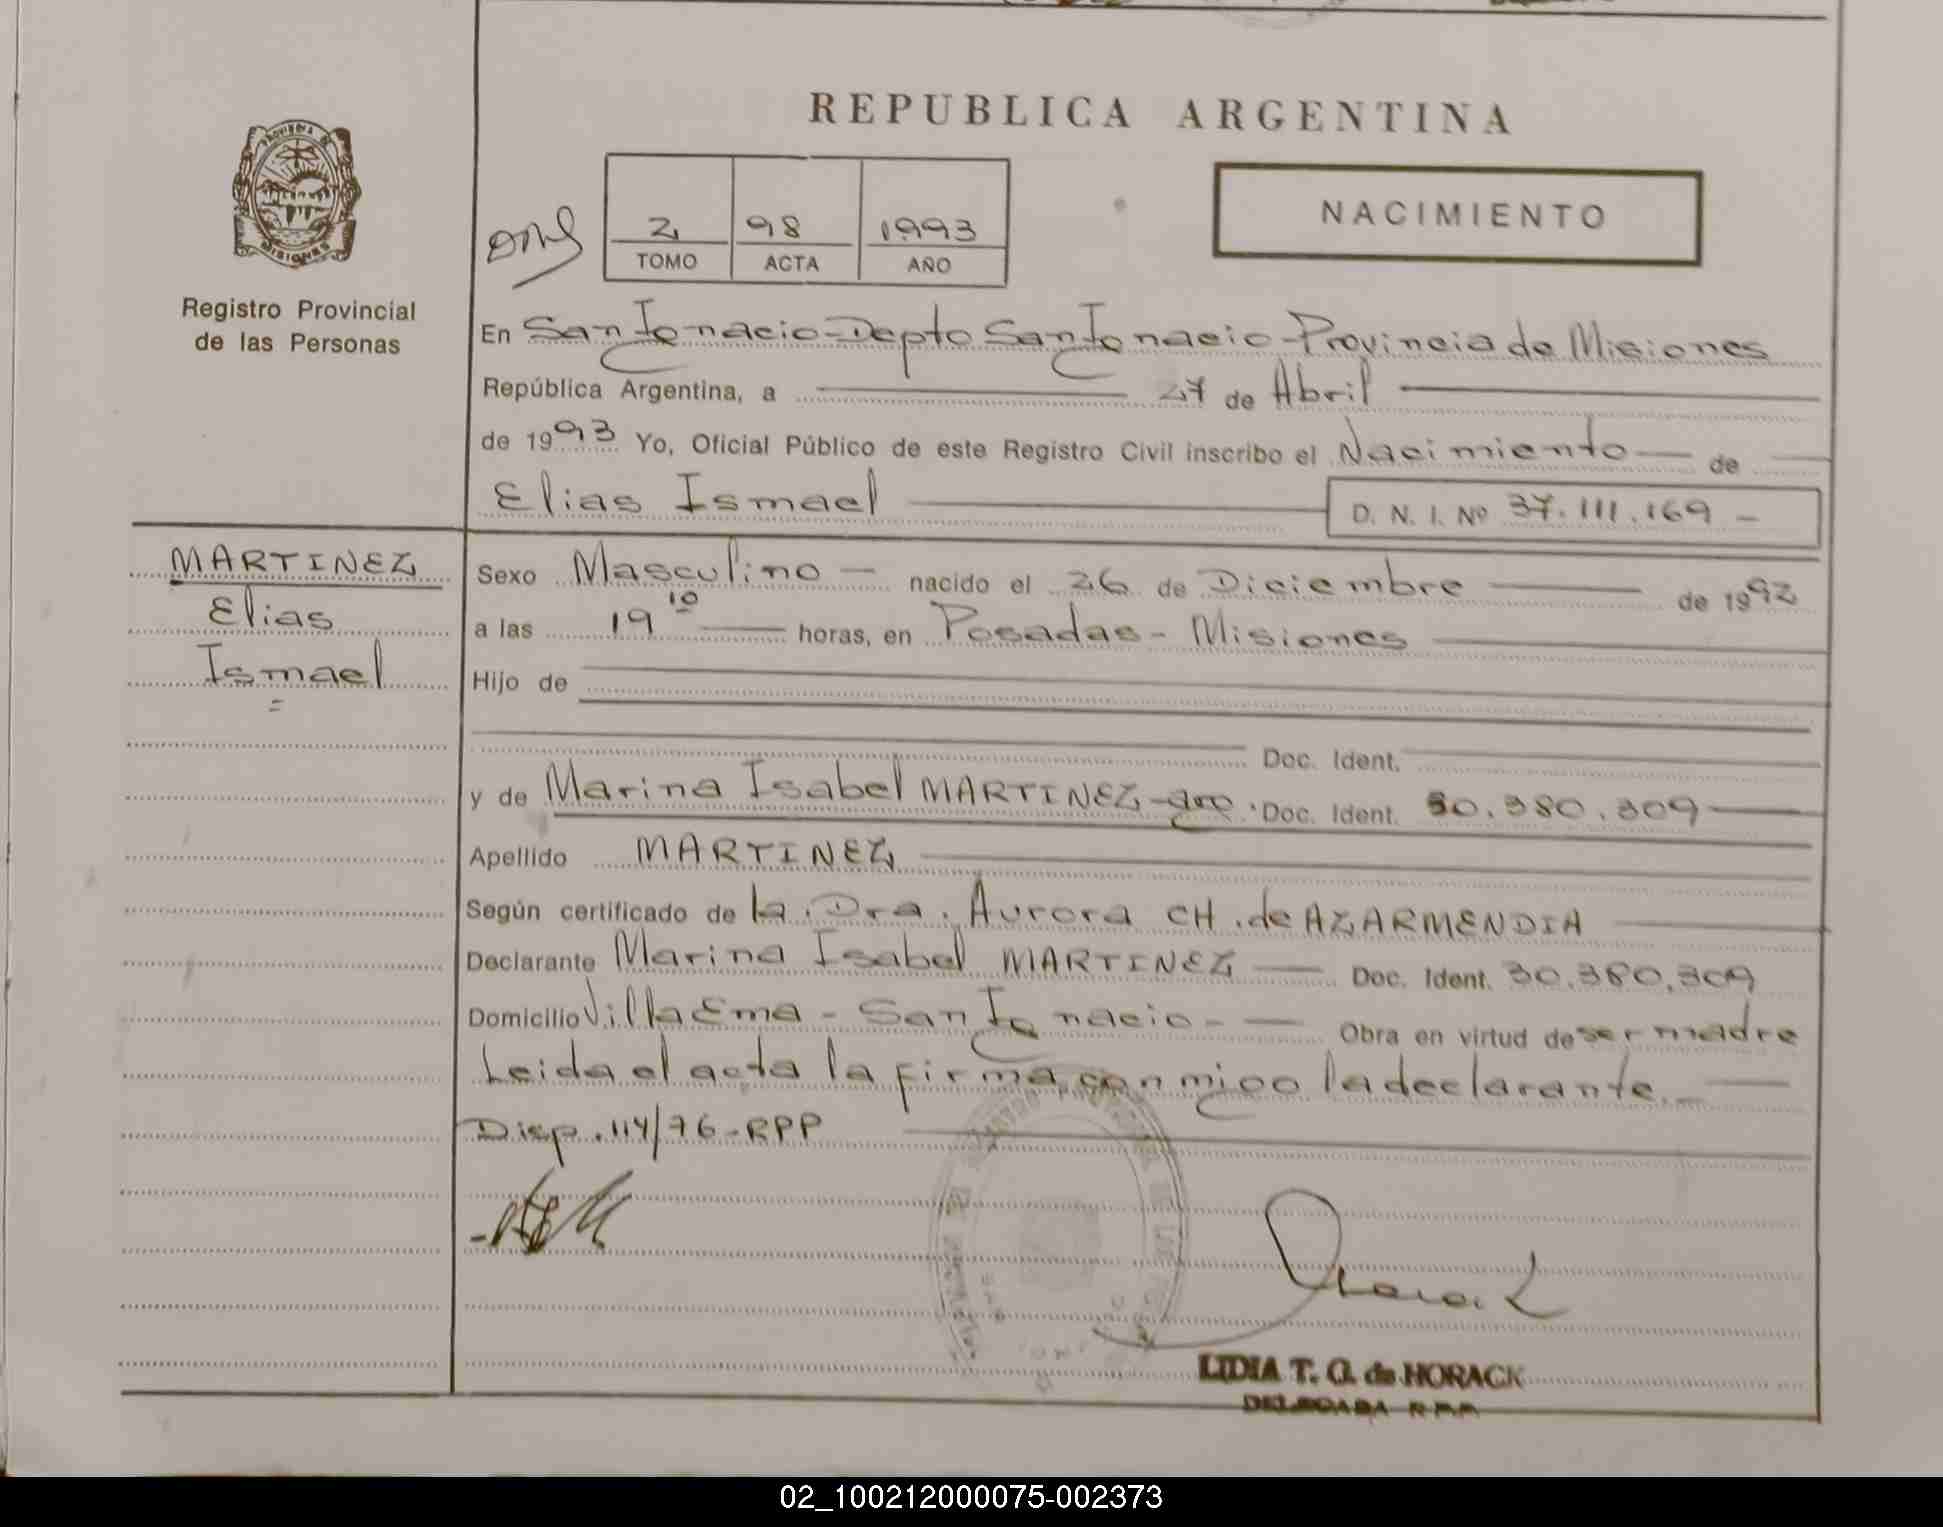 REPUBLICA ARGENTINA
PROVINCIA DE
MISIONES
Registro Provincial
de las Personas
2 98 1993
TOMO ACTA AÑO
NACIMIENTO
En San Ignacio - Depto San Ignacio - Provincia de Misiones
República Argentina, a 27 de Abril
de 1993 Yo, Oficial Público de este Registro Civil inscribo el Nacimiento de
Elias Ismael D. N. I. Nº 37.111.169 -
MARTINEZ
Elias
Ismael
Sexo Masculino - nacido el 26 de Diciembre de 1992
a las 19 10 horas, en Posadas - Misiones
Hijo de
Doc. Ident.
y de Marina Isabel MARTINEZ - arg. Doc. Ident. 30.380.309
Apellido MARTINEZ
Según certificado de la Dra. Aurora CH. de AZARMENDIA
Declarante Marina Isabel MARTINEZ Doc. Ident. 30.380.309
Domicilio Villa Ema - San Ignacio - Obra en virtud de ser madre
Leida el acta la firma con migo la declarante. -
Disp. 114/76 - RPP
LIDIA T. G. de HORACK
DELEGADA R.P.P.
02_100212000075-002373